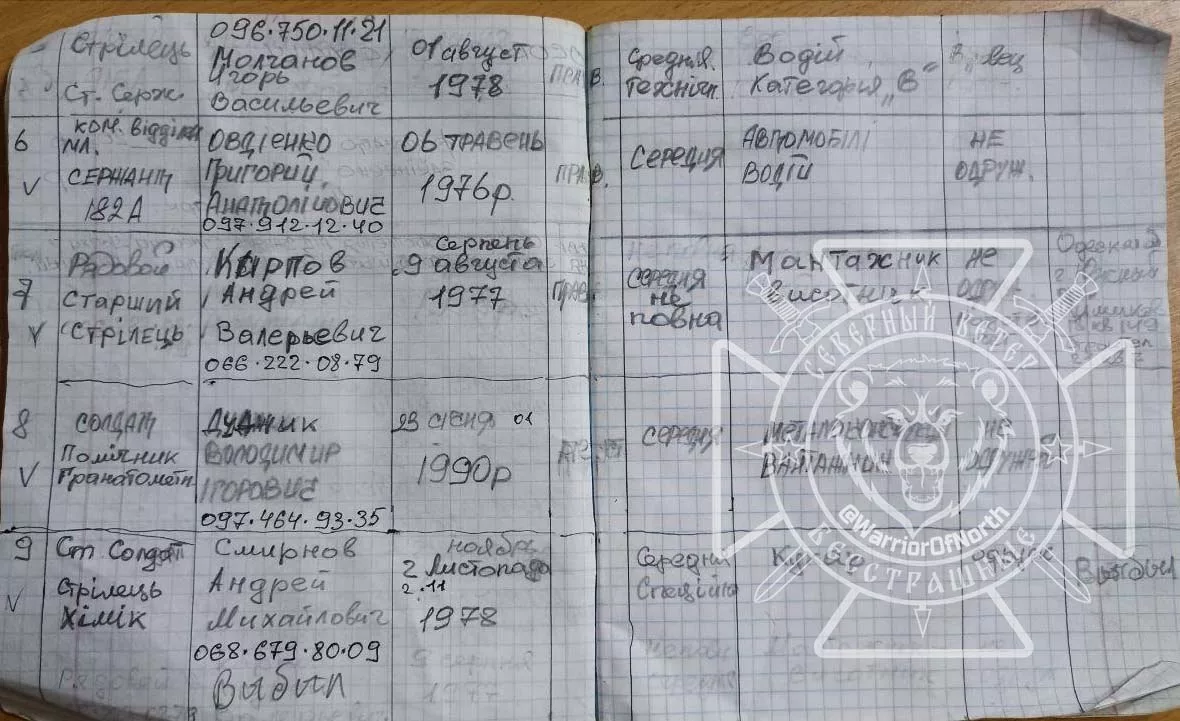 096.750.11.21
Стрілець
Молчанов
Игорь
Васильевич
Ст. Серж.
01 август
1978
ПРАВ.
Средняя.
Технічн.
Водій
Категория „В“
6
V
ком. Відділен
мл.
СЕРЖАНТ
182А
ОВДІЕНКО
Григорий
Анатолійович
097.912.12.40
06 ТРАВЕНЬ
1976р.
ПРАВ.
СЕРЕДНЯ
АВТОМОБІЛІ
ВОДІЙ
НЕ
ОДРУЖ.
7
V
Рядовой
Старший
Стрілець
Карпов
Андрей
Валерьевич
066.222.08.79
Серпень
9 августа
1977
ПРАВ.
Середня
не
повна
Мантажник
Висотник
не
8
V
СОЛДАТ
Помічник
Гранатометн.
Дудник
ВОЛОДИМИР
ІГОРОВИЧ
097.464.93.35
23 січня 01
1990р
середня
не
9
V
Ст. Солдат
Стрілець
Хімік
Смирнов
Андрей
Михайлович
068.679.80.09
Выбыл
ноябрь
2 Листопада
2.11
1978
Середня
Выбыл
СЕВЕРНЫЙ ВЕТЕР
@WarriorOfNorth
БЕССТРАШНЫЕ